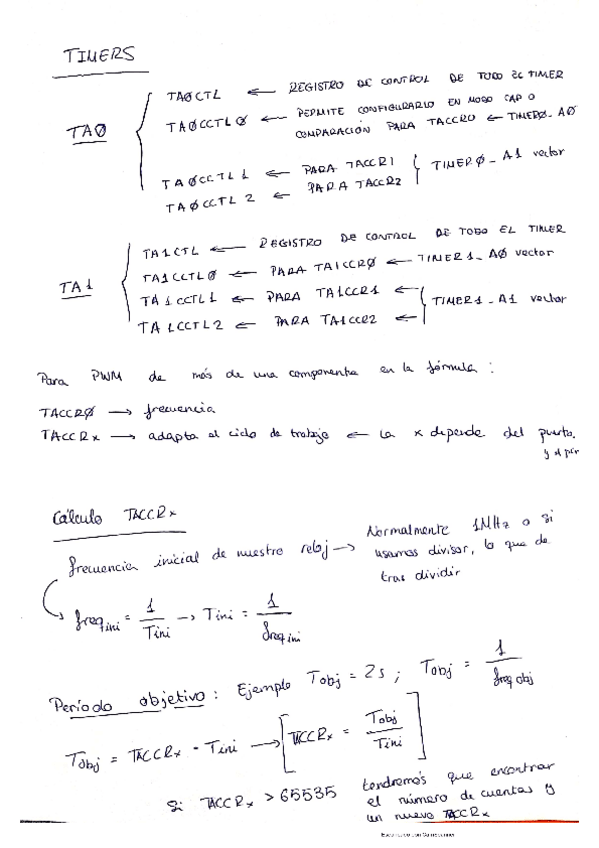 TIMERS
TAØ
TAØCTL ← REGISTRO DE CONTROL DE TODO EL TIMER
TAØCCTLØ ← PERMITE CONFIGURARLO EN MODO CAP O
COMPARACIÓN PARA TACCRO ← TIMERØ_AØ
TAØCCTL 1 ← PARA TACCR1
TAØCCTL 2 ← PARA TACCR2
TIMERØ_A1 vector
TA1
TA1CTL ← REGISTRO DE CONTROL DE TODO EL TIMER
TA1CCTLØ ← PARA TA1CCRØ ← TIMER1_AØ vector
TA1CCTL1 ← PARA TA1CCR1 ←
TA1CCTL2 ← PARA TA1CCR2 ←
TIMER1_A1 vector
Para PWM de más de una componente en la fórmula :
TACCRØ → frecuencia
TACCRx → adapta al ciclo de trabajo ← La x depende del puerto.
y el pin
Cálculo TACCRx
frecuencia inicial de nuestro reloj → Normalmente 1MHz o si
usamos divisor, lo que de
tras dividir
freq ini = 1/Tini → Tini = 1/freq ini
Período objetivo : Ejemplo Tobj = 2s ; Tobj = 1/freq obj
Tobj = TACCRx · Tini → [TACCRx = Tobj/Tini]
Si TACCRx > 65535 tendremos que encontrar
el número de cuentas y
un nuevo TACCRx
Escaneado con CamScanner